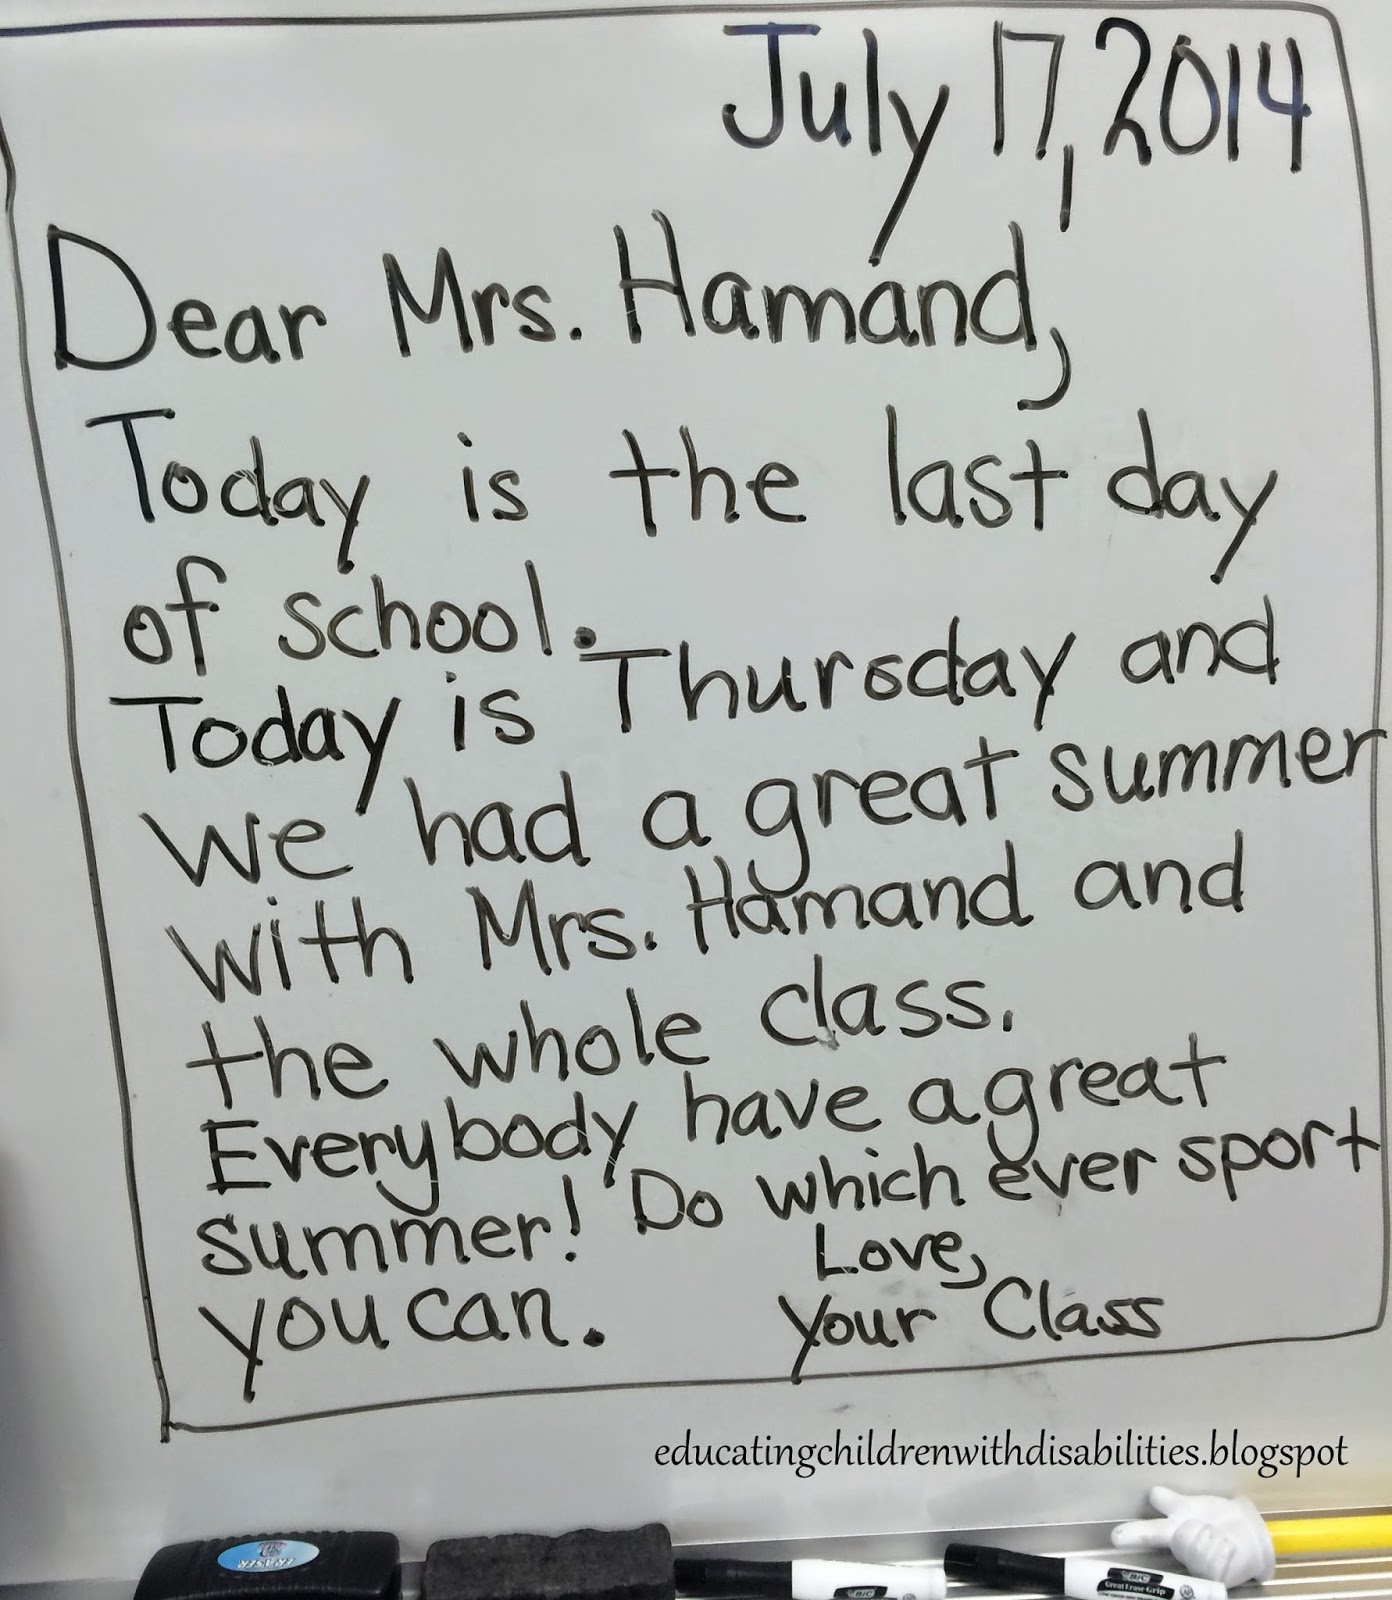 July 17, 2014
Dear Mrs. Hamand,
Today is the last day
of school.
Today is Thursday and
we had a great summer
with Mrs. Hamand and
the whole class.
Everybody have a great
summer! Do which ever sport
you can.
Love,
Your Class
educatingchildrenwithdisabilities.blogspot
ERASER
BIC
BIC
Great Erase Grip